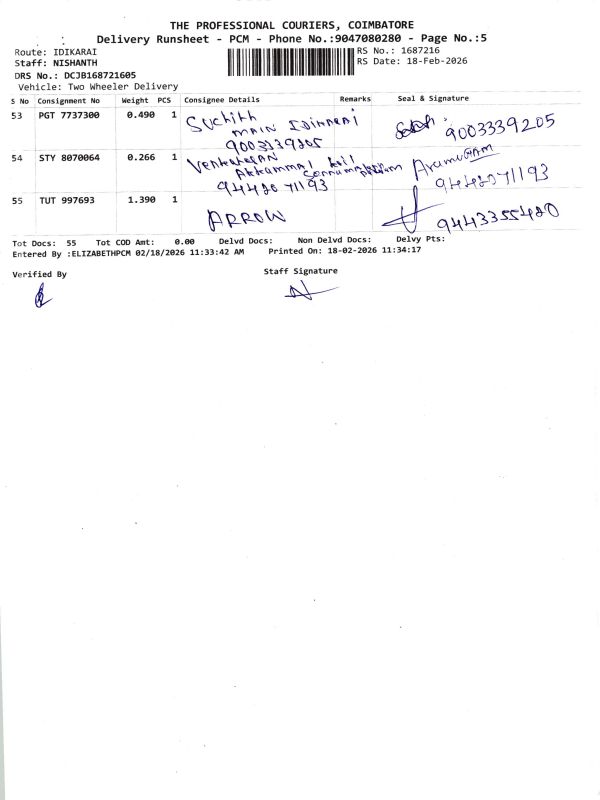 THE PROFESSIONAL COURIERS, COIMBATORE
Delivery Runsheet - PCM - Phone No.:9047080280 - Page No.:5
Route: IDIKARAI
RS No.: 1687216
Staff: NISHANTH
RS Date: 18-Feb-2026
DRS No.: DCJB168721605
Vehicle: Two Wheeler Delivery
S No Consignment No Weight PCS Consignee Details Remarks Seal & Signature
53 PGT 7737300 0.490 1 Suchith
main Idikarai
9003339205
9003339205
54 STY 8070064 0.266 1 Venkatesan
koil
9442071193
Arumugam
9442071193
55 TUT 997693 1.390 1
ARROW
9443355420
Tot Docs: 55 Tot COD Amt: 0.00 Delvd Docs: Non Delvd Docs: Delvy Pts:
Entered By :ELIZABETHPCM 02/18/2026 11:33:42 AM Printed On: 18-02-2026 11:34:17
Verified By
Staff Signature